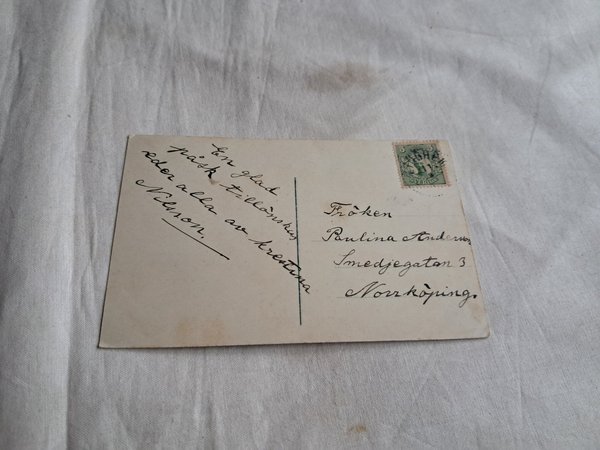 En glad
påsk tillönskas
eder alla av krestina
Nilsson.
Fröken
Paulina Anderson
Smedjegatan 3
Norrköping.